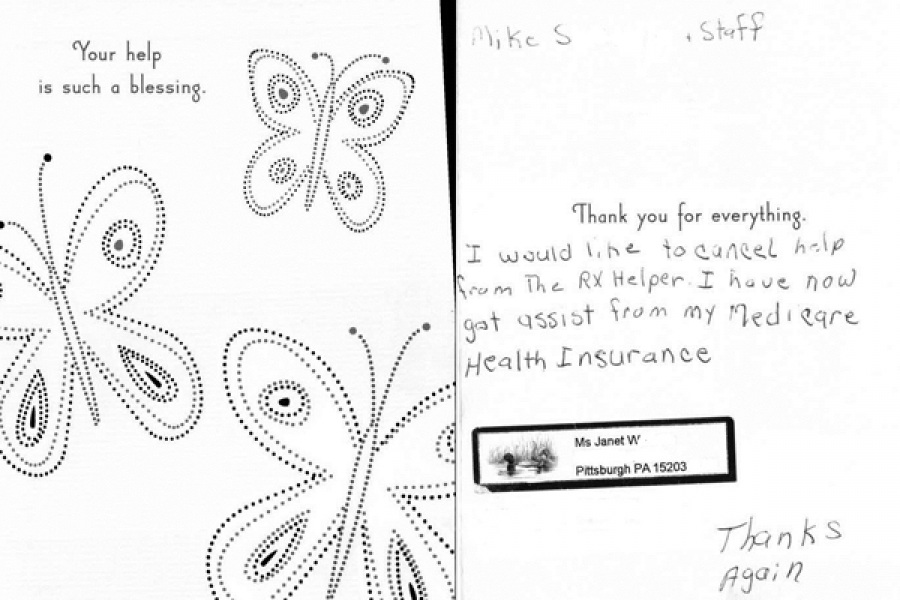 Your help
is such a blessing.
Mike S + Staff
Thank you for everything.
I would like to cancel help
from The RX Helper. I have now
got assist from my Medicare
Health Insurance
Ms Janet W
Pittsburgh PA 15203
Thanks
Again